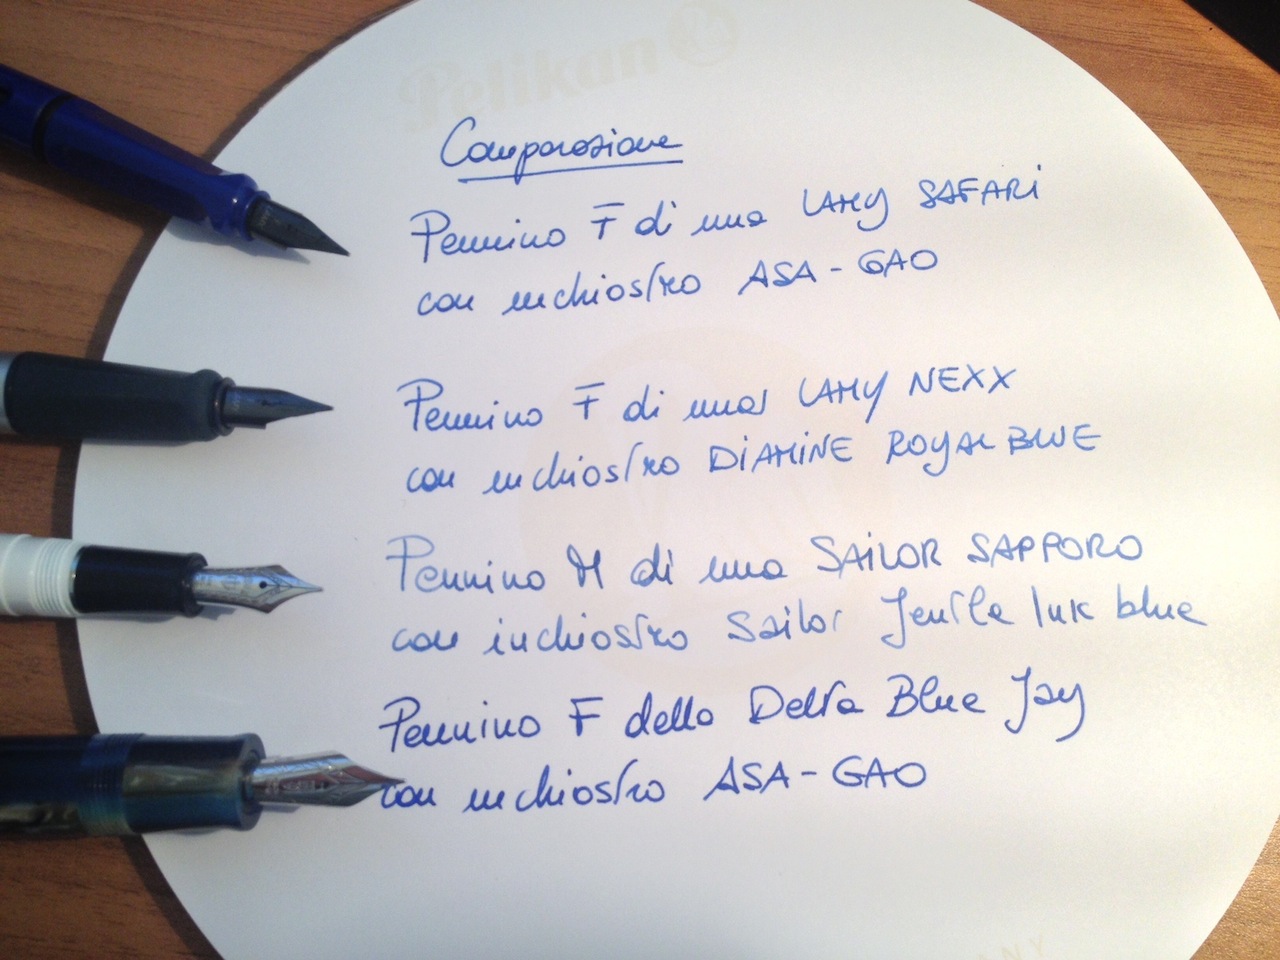 Pelikan
Comparazione
Pennino F di una LAMY SAFARI
con inchiostro ASA-GAO
Pennino F di una LAMY NEXX
con inchiostro DIAMINE ROYAL BLUE
Pennino M di una SAILOR SAPPORO
con inchiostro Sailor Jentle Ink blue
Pennino F della Delta Blue Jay
con inchiostro ASA-GAO